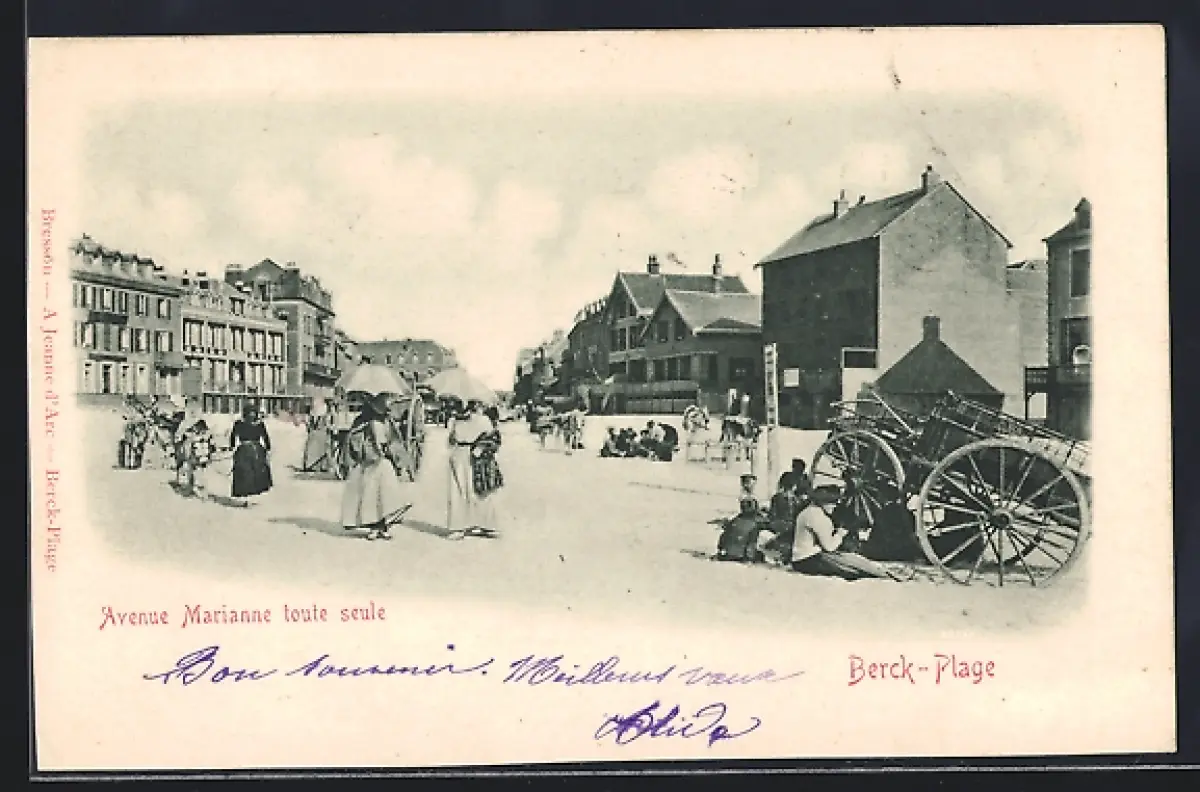 Bresson — A Jeanne d'Arc — Berck-Plage
Avenue Marianne toute seule
Berck-Plage
Bon souvenir. Meilleurs vœux